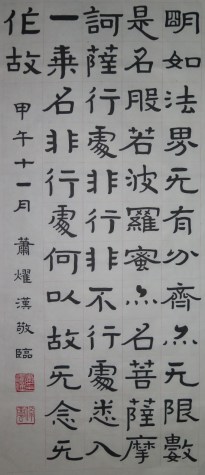 明如法界无有分齊亦无限數
是名般若波羅蜜亦名菩薩摩
訶薩行處非行非不行處悉入
一乘名非行處何以故无念无
作故 甲午十一月 蕭燿漢敬臨